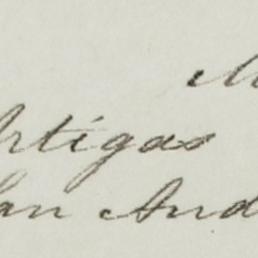 M
Artigas
an And